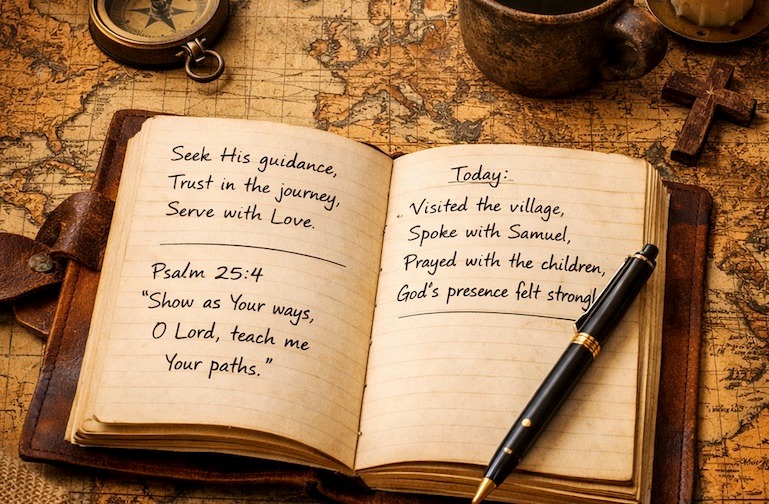 Seek His guidance,
Trust in the journey,
Serve with Love.
Psalm 25:4
“Show as Your ways,
O Lord, teach me
Your paths.”
Today:
Visited the village,
Spoke with Samuel,
Prayed with the children,
God's presence felt